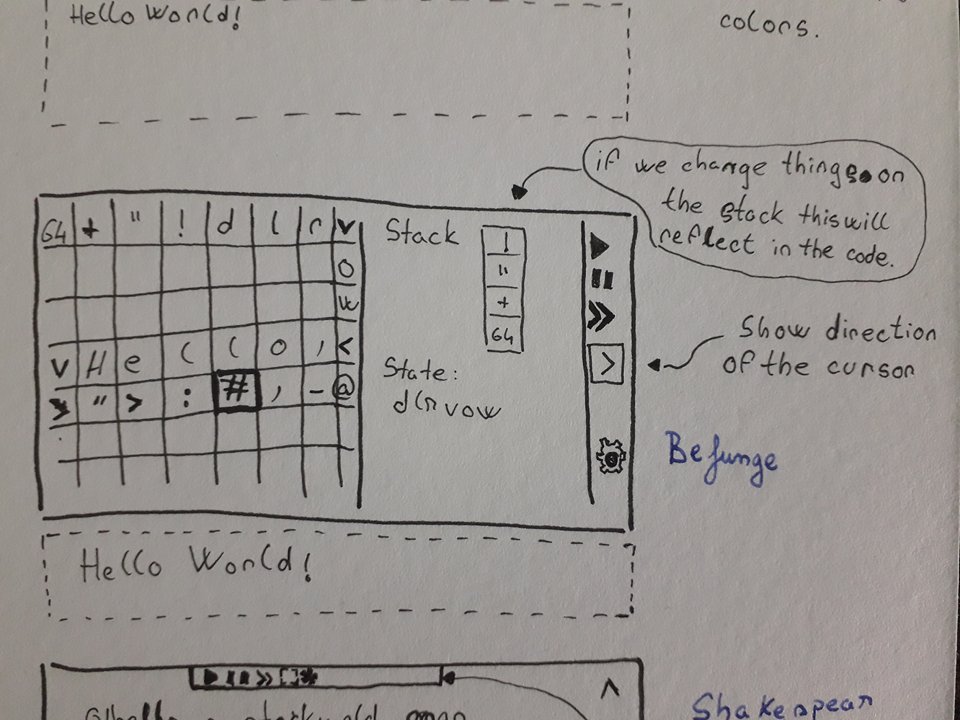 Hello World!
colors.
if we change things on
the stack this will
reflect in the code.
64 + " ! d l r v
O
W
v H e l l o , <
> " > : # , _ @
Stack
!
"
+
64
State:
dlrvow
>
Show direction
of the cursor
Befunge
Hello World!
Shakespear